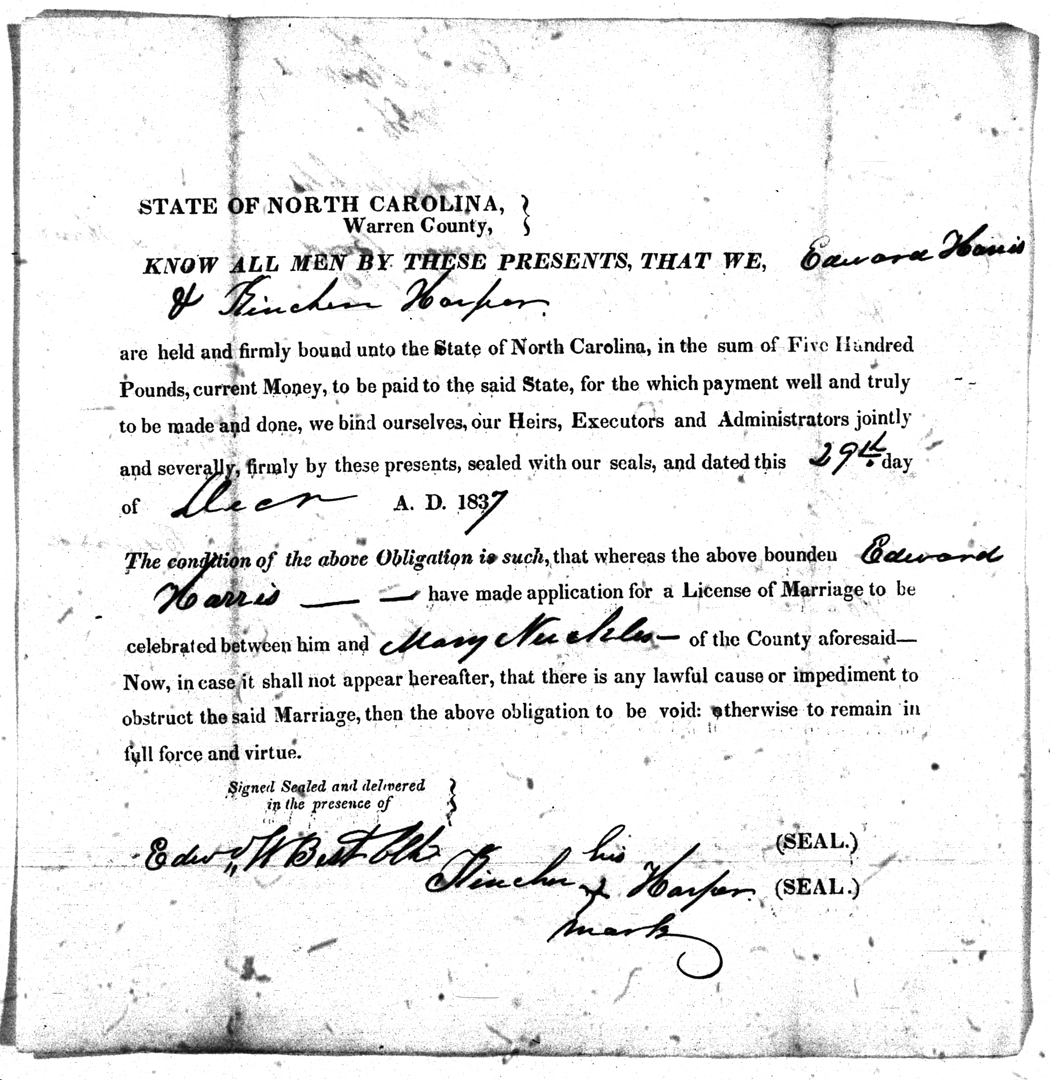 STATE OF NORTH CAROLINA,
Warren County,
KNOW ALL MEN BY THESE PRESENTS, THAT WE, Edward Harris
& Kinchen Harper.
are held and firmly bound unto the State of North Carolina, in the sum of Five Hundred
Pounds, current Money, to be paid to the said State, for the which payment well and truly
to be made and done, we bind ourselves, our Heirs, Executors and Administrators jointly
and severally, firmly by these presents, sealed with our seals, and dated this 29th. day
of Decr A. D. 1837
The condition of the above Obligation is such, that whereas the above bounden Edward
Harris — — have made application for a License of Marriage to be
celebrated between him and Mary Nuckles — of the County aforesaid—
Now, in case it shall not appear hereafter, that there is any lawful cause or impediment to
obstruct the said Marriage, then the above obligation to be void: otherwise to remain in
full force and virtue.
Signed Sealed and delivered
in the presence of
(SEAL.)
Edwd W Best Clk
his
Kinchen Harper. (SEAL.)
mark